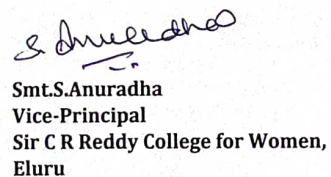 S. Anuradha
Smt.S.Anuradha
Vice-Principal
Sir C R Reddy College for Women,
Eluru